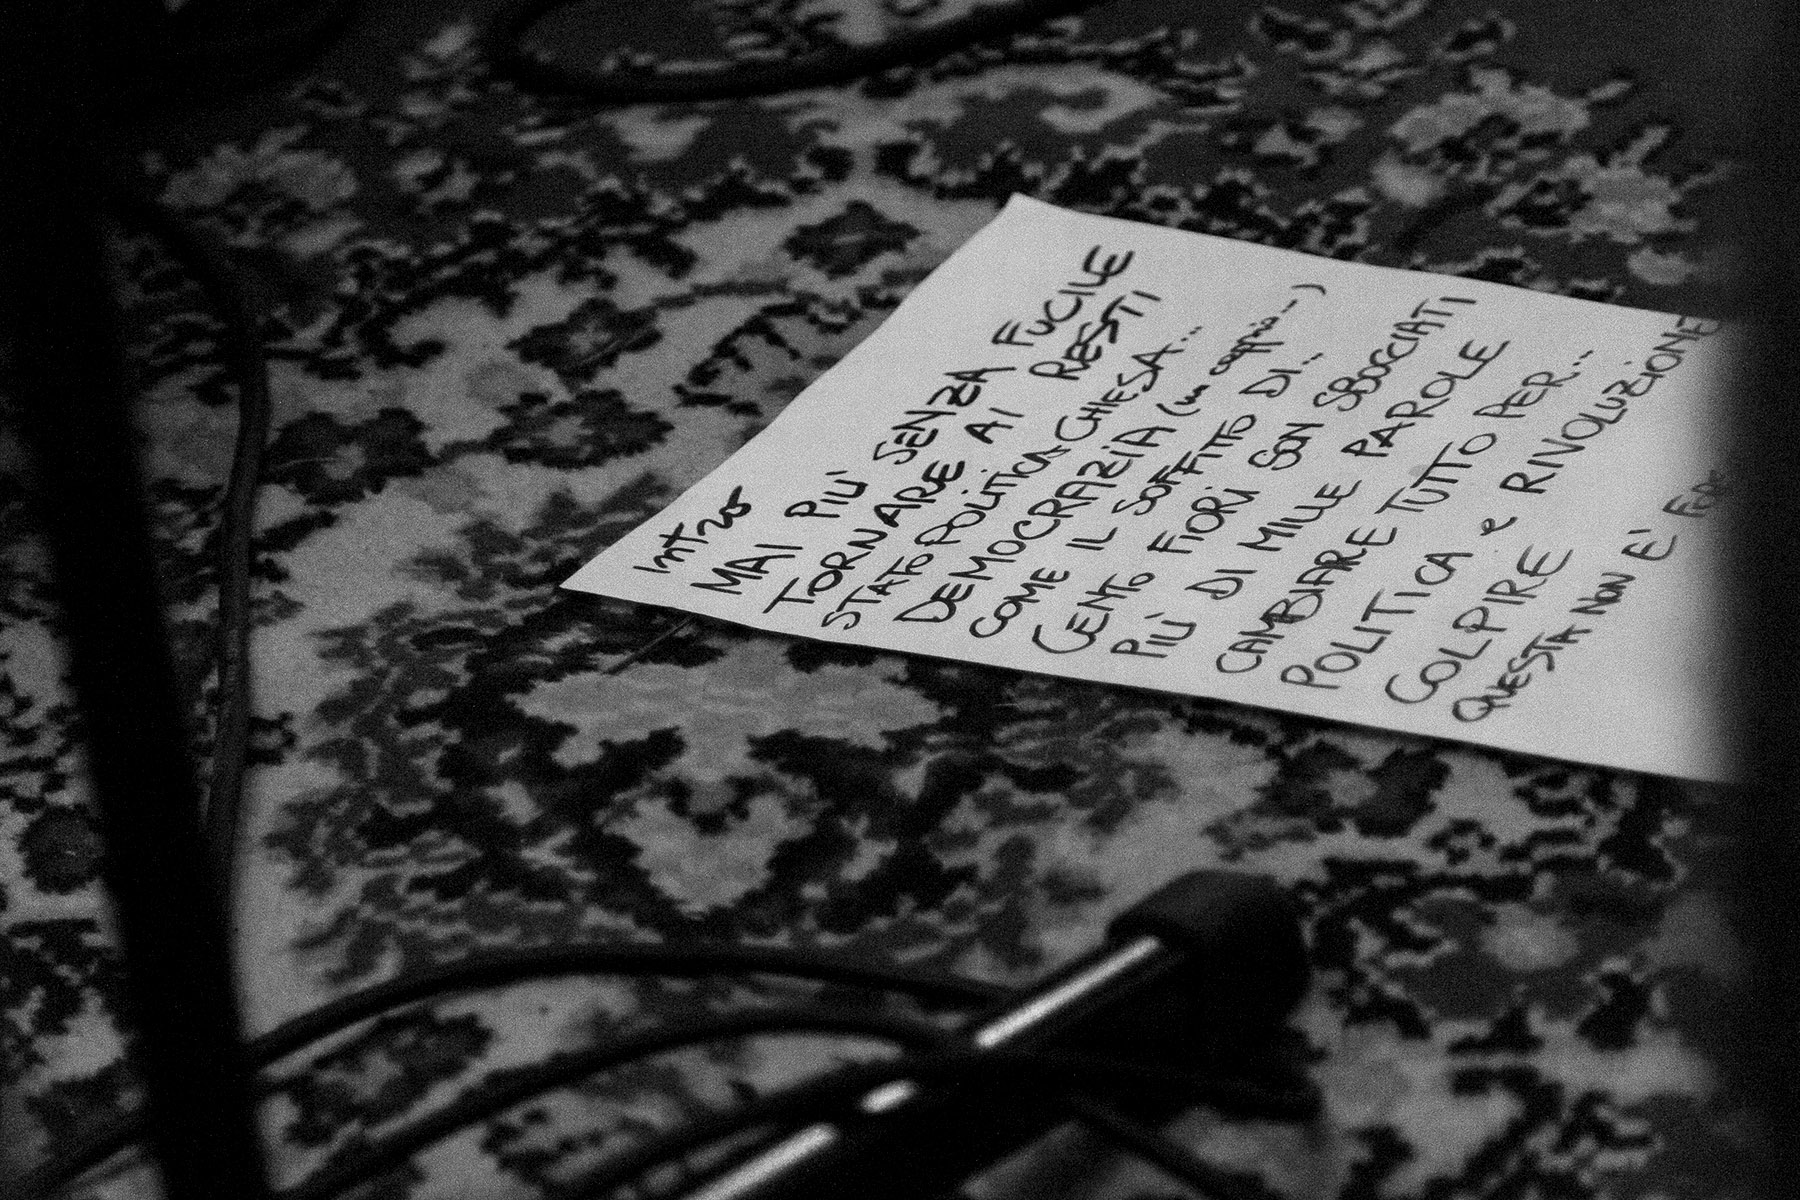 Intro
MAI PIU' SENZA FUCILE
TORNARE AI RESTI
STATO.POLITICA.CHIESA...
DEMOCRAZIA (un
COME IL SOFFITTO DI...
CENTO FIORI SON SBOCCIATI
PIÙ DI MILLE PAROLE
CAMBIARE TUTTO PER...
POLITICA e RIVOLUZIONE
COLPIRE
QUESTA NON E'